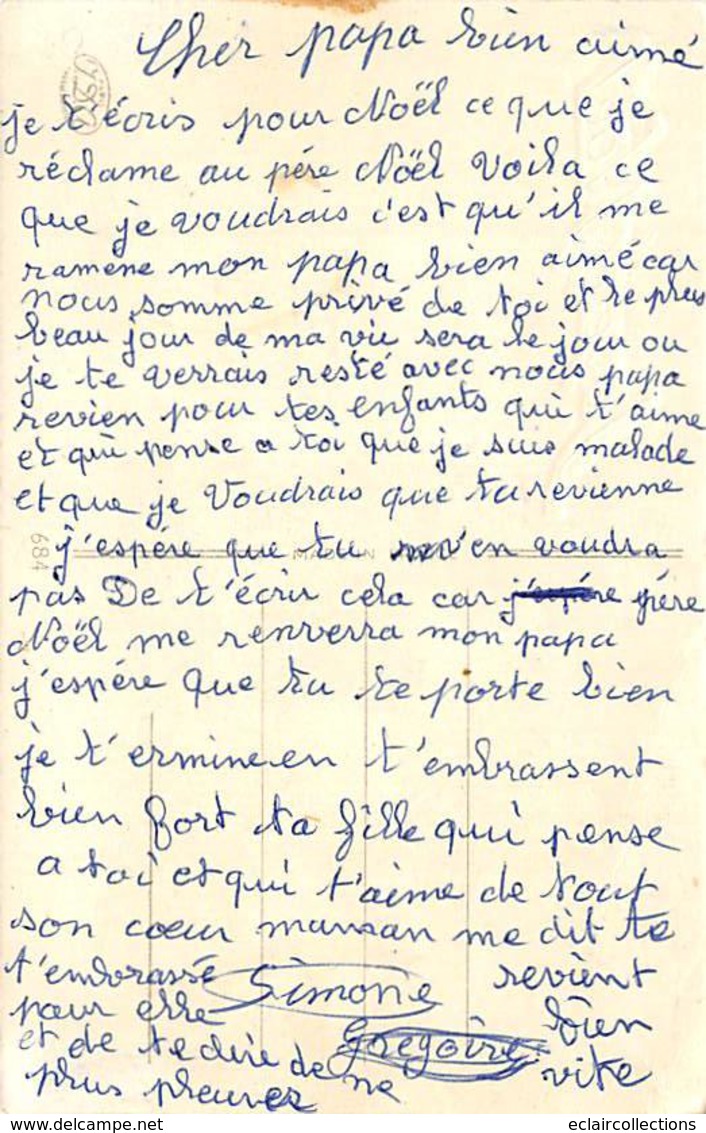 Cher papa bien aimé
je t'écris pour Noël ce que je
réclame au père Noël voila ce
que je voudrais c'est qu'il me
ramene mon papa bien aimé car
nous somme privé de toi et le plus
beau jour de ma vie sera le jour ou
je te verrais resté avec nous papa
revien pour tes enfants qui t'aime
et qui pense a toi que je suis malade
et que je voudrais que tu revienne
j'espére que tu m'en voudra
684
pas De t'écrir cela car j'espére pére
Noël me renverra mon papa
j'espére que tu te porte bien
je t'ermine en t'embrassent
bien fort ta fille qui pense
a toi et qui t'aime de tout
son coeur maman me dit te
t'embrassé Simone revient
pour elle bien
Gregoire
et de te dire de ne vite
plus pleurez
eclaircollections